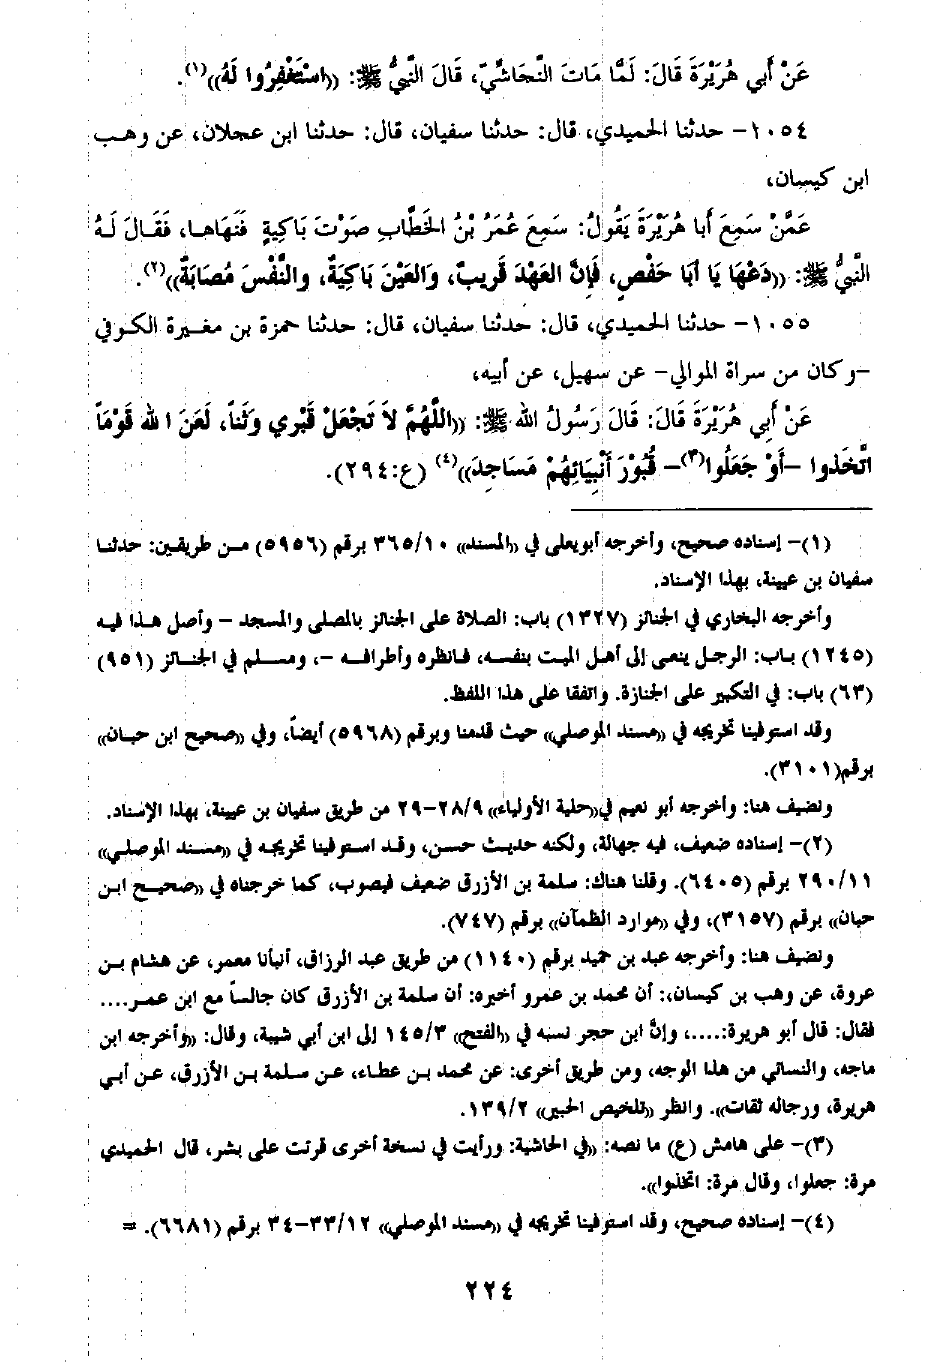 عَنْ أَبي هُرَيْرَةَ قَالَ: لَمَّا مَاتَ النَّجَاشيّ، قَالَ النَّبيُّ ﷺ: ((اسْتَغْفِرُوا لَهُ))(١).
١٠٥٤- حدثنا الحميدي، قال: حدثنا سفيان، قال: حدثنا ابن عجلان، عن وهب
ابن كيسان،
عَمَّنْ سَمِعَ أبا هُرَيْرَةَ يَقُولُ: سَمِعَ عُمَرُ بْنُ الخَطَّابِ صَوْتَ بَاكِيةٍ فَنَهَاهـا، فَقَـالَ لَـهُ
النَّبيُّ ﷺ: ((دَعْهَا يَا أَبَا حَفْصٍ، فَإِنَّ العَهْدَ قَرِيبٌ، وَالعَيْنَ بَاكِيَةٌ، والنَّفْسَ مُصَابَةٌ))(٢).
١٠٥٥- حدثنا الحميدي، قال: حدثنا سفيان، قال: حدثنا حمزة بن مغيرة الكوفي
-وكان من سراة الموالي- عن سهيل، عن أبيه،
عَنْ أَبِي هُرَيْرَةَ قَالَ: قَالَ رَسُولُ اللهِ ﷺ: ((اللَّهُمَّ لاَ تَجْعَلْ قَبْرِي وَثَناً، لَعَنَ الله قَوْمَاً
اتَّخَذوا -أَوْ جَعَلُوا(٣)- قُبُورَ أَنْبِيَائِهُمْ مَسَاجِدَ))(٤) (ع:٢٩٤).
(١)- إسناده صحيح، وأخرجه أبويعلى في ((المسند)) ٣٦٥/١٠ برقم (٥٩٥٦) من طريقين: حدثنا
سفيان بن عيينة، بهذا الإسناد.
وأخرجه البخاري في الجنائز (١٣٢٧) باب: الصلاة على الجنائز بالمصلى والمسجد - وأصل هـذا فيه
(١٢٤٥) باب: الرجل ينعى إلى أهل الميت بنفسه، فانظره وأطرافه -، ومسلم في الجنائز (٩٥١)
(٦٣) باب: في التكبير على الجنازة. واتفقا على هذا اللفظ.
وقد استوفينا تخريجه في ((مسند الموصلي)) حيث قدمنا وبرقم (٥٩٦٨) أيضاً، وفي ((صحيح ابن حبان))
برقم(٣١٠١).
ونضيف هنا: وأخرجه أبو نعيم في((حلية الأولياء)) ٢٨/٩-٢٩ من طريق سفيان بن عيينة، بهذا الإسناد.
(٢)- إسناده ضعيف، فيه جهالة، ولكنه حديث حسن، وقد استوفينا تخريجه في ((مسند الموصلي))
٢٩٠/١١ برقم (٦٤٠٥). وقلنا هناك: سلمة بن الأزرق ضعيف فيصوب، كما خرجناه في ((صحيح ابن
حبان)) برقم (٣١٥٧)، وفي ((موارد الظمآن)) برقم (٧٤٧).
ونضيف هنا: وأخرجه عبد بن حميد برقم (١١٤٠) من طريق عبد الرزاق، أنبأنا معمر، عن هشام بن
عروة، عن وهب بن كيسان،: أن محمد بن عمرو أخبره: أن سلمة بن الأزرق كان جالساً مع ابن عمر....
فقال: قال أبو هريرة:....، وإنَّ ابن حجر نسبه في ((الفتح)) ١٤٥/٣ إلى ابن أبي شيبة، وقال: ((وأخرجه ابن
ماجه، والنسائي من هذا الوجه، ومن طريق أخرى: عن محمد بن عطاء، عن سلمة بن الأزرق، عن أبي
هريرة، ورجاله ثقات)). وانظر ((تلخيص الحبير)) ١٣٩/٢.
(٣)- على هامش (ع) ما نصه: ((في الحاشية: ورأيت في نسخة أخرى قرئت على بشر، قال الحميدي
مرة: جعلوا، وقال مرة: اتخذوا)).
(٤)- إسناده صحيح، وقد استوفينا تخريجه في ((مسند الموصلي)) ٣٣/١٢-٣٤ برقم (٦٦٨١). =
٢٢٤